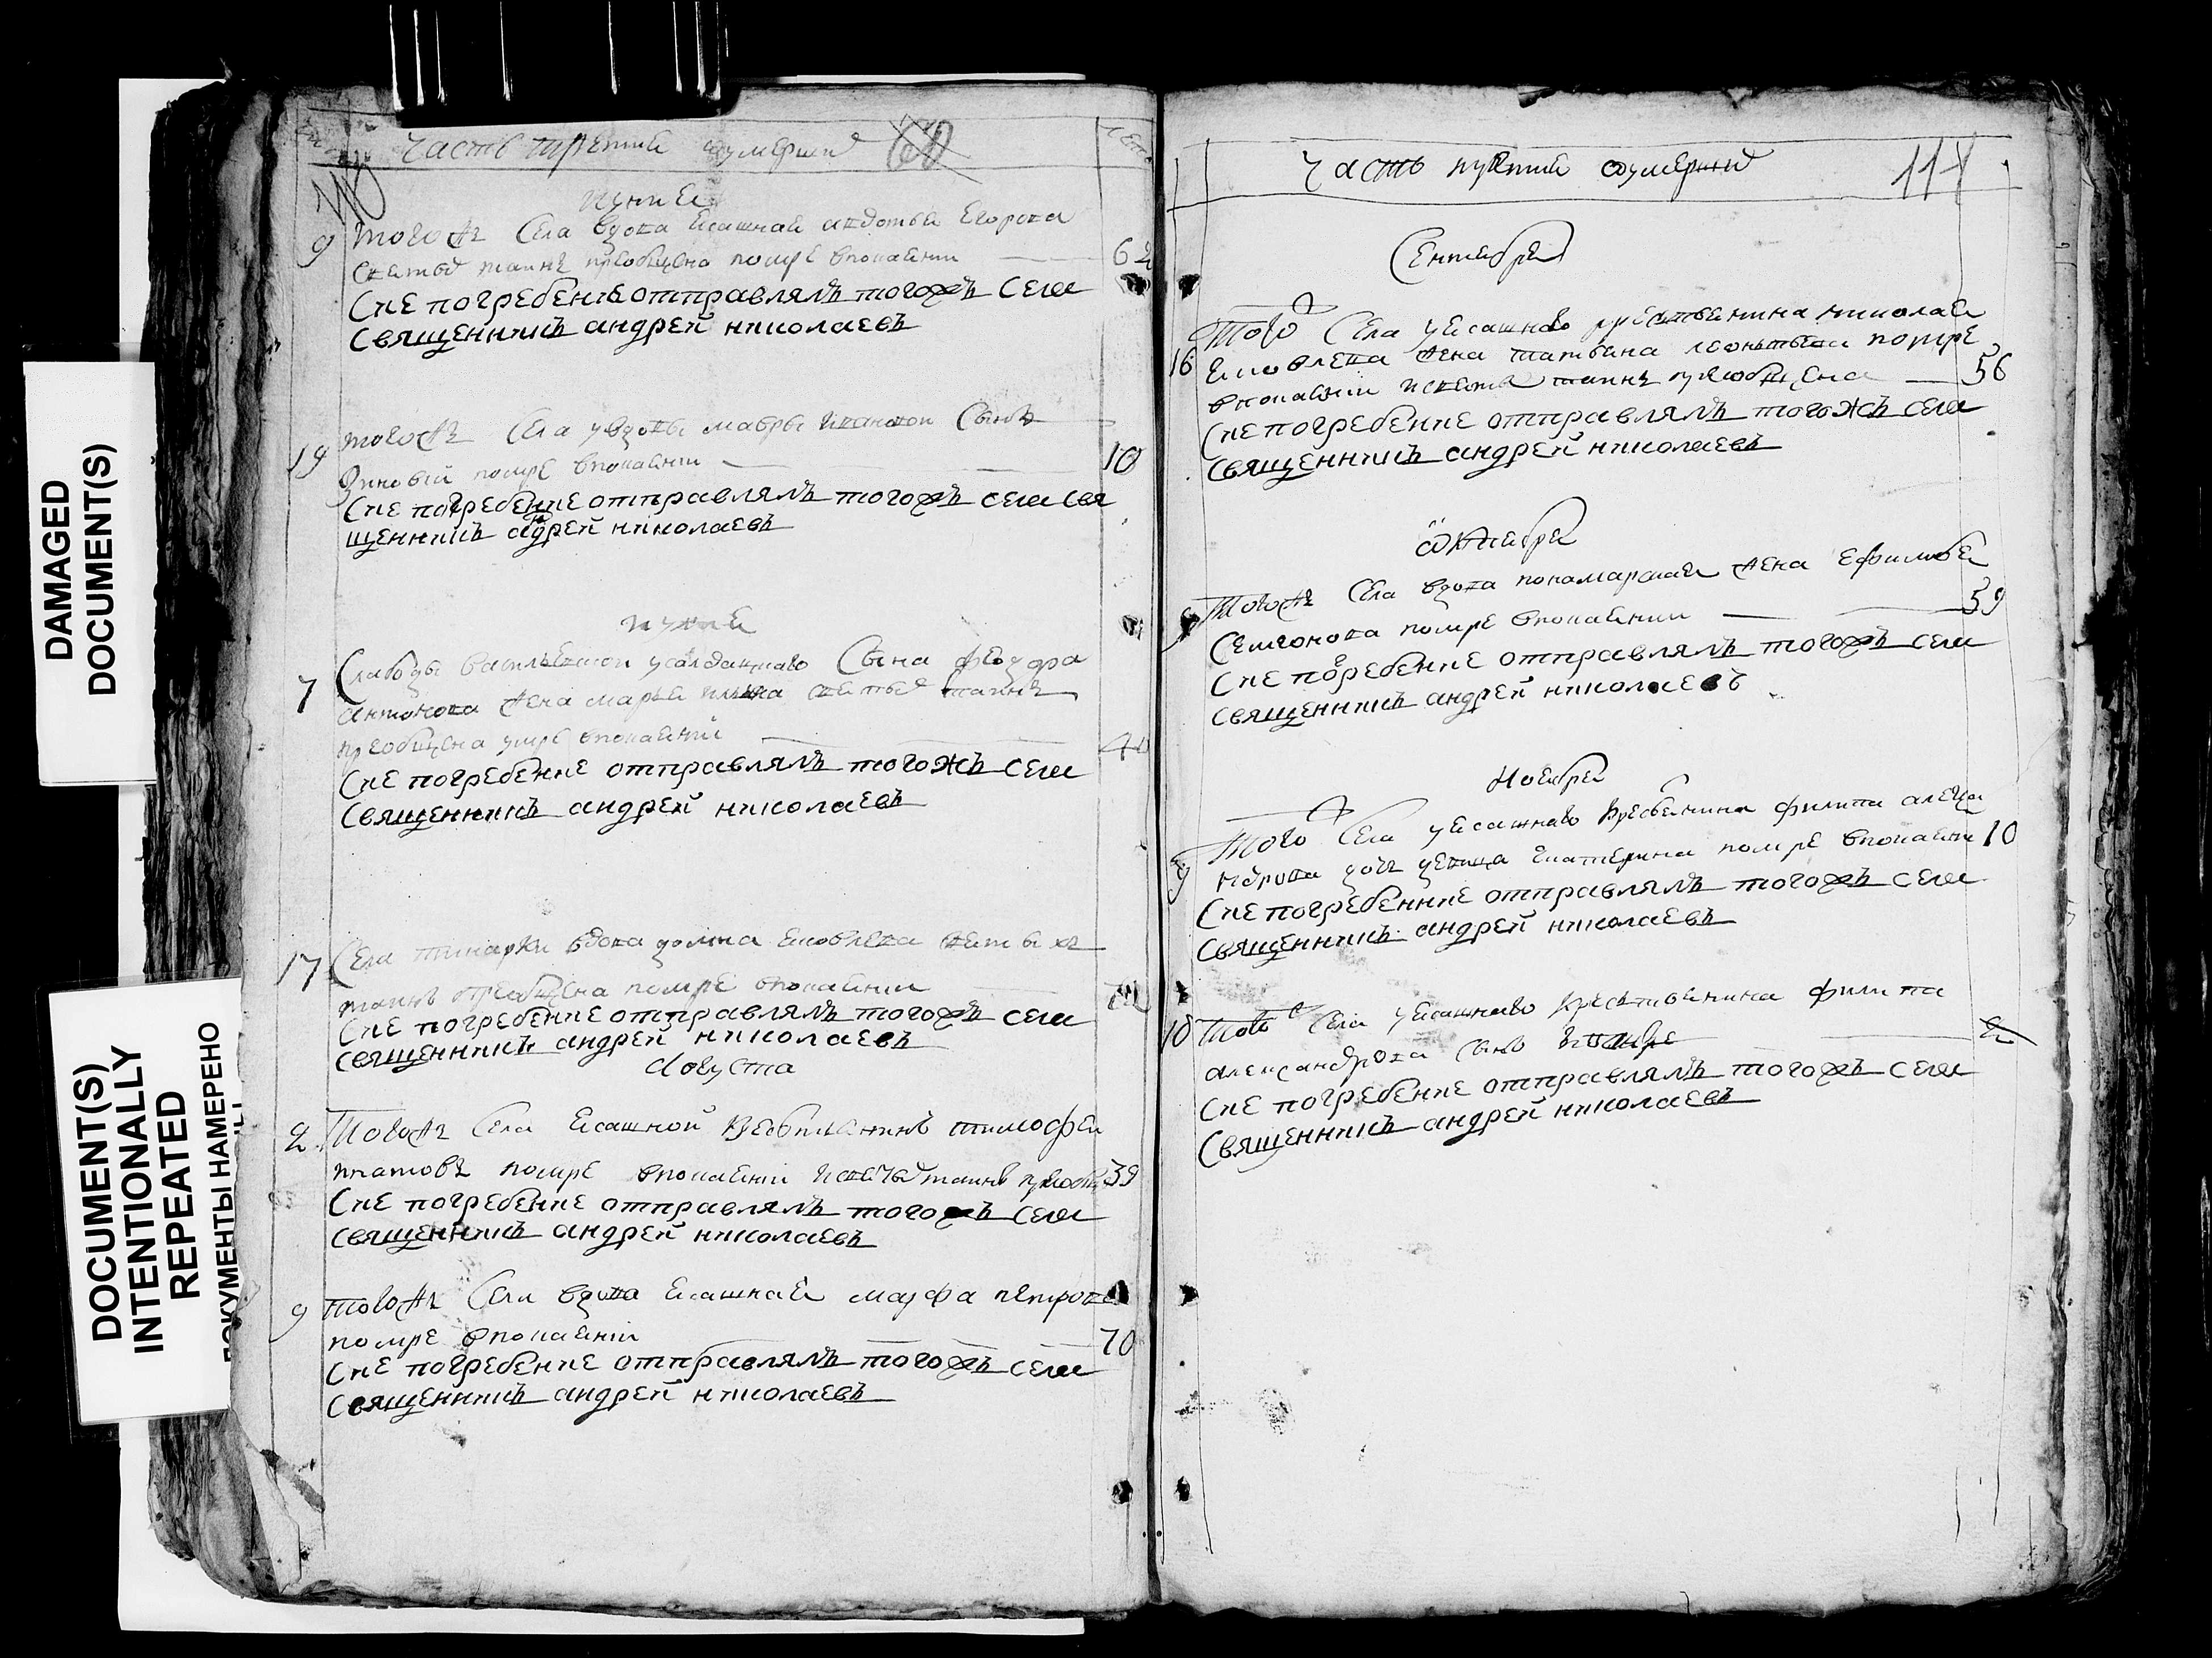 DAMAGED
DOCUMENT(S)
DOCUMENT(S)
INTENTIONALLY
REPEATED
ДОКУМЕНТЫ НАМЕРЕНО
часть третия оумершихъ 60
июния
9 тогожъ села вдова ясашная авдотья егорова
святыхъ таинъ приобщена помре впокаянии 62
сие погребение отправлялъ тогожъ села
священникъ андрей николаевъ
19 тогожъ села увдовы мавры ивановои сынъ
зиновий помре впокаянии 10
сие погребение отправлялъ тогожъ села свя
щенникъ андрей николаевъ
июлия
7 слабоды васильевской усалдацкаго сына феодора
антонова жена марья святыхъ таинъ
приобщена умре впокаянии 40
сие погребение отправлялъ тогожъ села
священникъ андрей николаевъ
17 села вдова домна яковлева святыхъ
таинъ приобщена помре впокаянии
сие погребение отправлялъ тогожъ села
священникъ андрей николаевъ
августа
2 тогожъ села ясашной крестьянинъ тимофеи
платовъ помре впокаянии исвятыхъ таинъ приобщ 39
сие погребение отправлялъ тогожъ села
священникъ андрей николаевъ
9 тогожъ села вдова ясашная марфа петрова
помре впокаянии 70
сие погребение отправлялъ тогожъ села
священникъ андрей николаевъ
часть третия оумершихъ 111
сентября
16 тогожъ села уясашнаго крестьянина николая
яковлева жена татьяна леонтьева помре
впокаянии исвятыхъ таинъ приобщена 56
сие погребение отправлялъ тогожъ села
священникъ андрей николаевъ
октября
9 тогожъ села вдова понамарская жена ефимья
семионова помре впокаянии 59
сие погребение отправлялъ тогожъ села
священникъ андрей николаевъ
ноября
9 тогожъ села уясашнаго кресьянина филипа алекса
ндрова дочь девица екатерина помре впокаянии 10
сие погребенние отправлялъ тогожъ села
священникъ андрей николаевъ
10 тогожъ села уясашнаго крестьянина филипа
александрова сынъ 2
сие погребение отправлялъ тогожъ села
священникъ андрей николаевъ